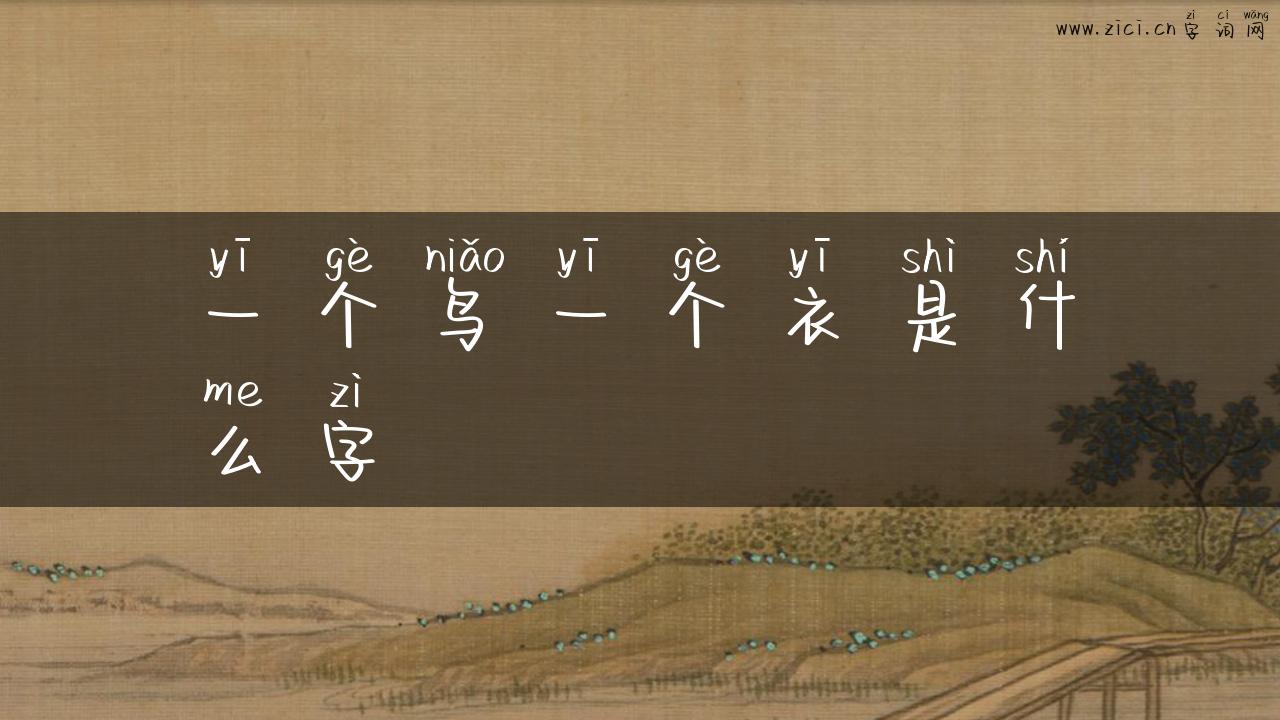 zì cí wǎng
www.zici.cn字词网
yī gè niǎo yī gè yī shì shí
一个鸟一个衣是什
me zì
么字